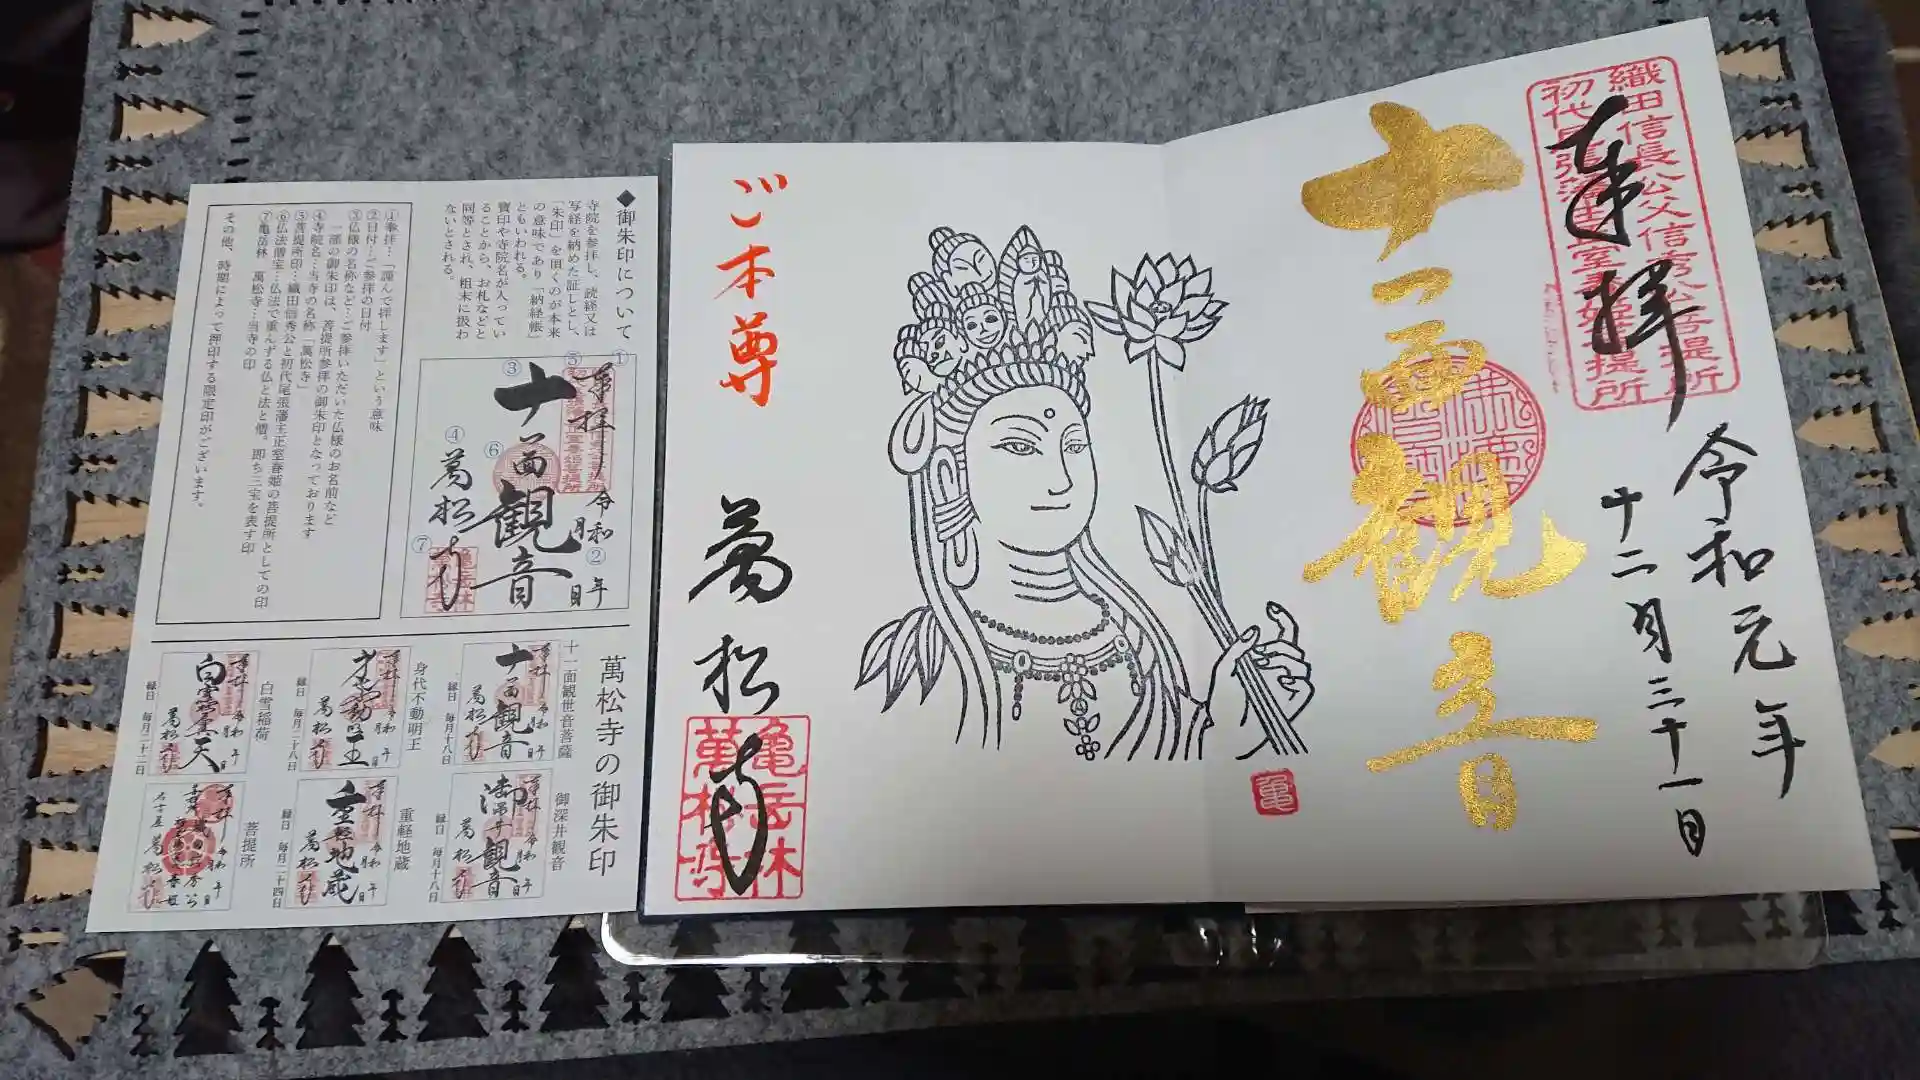 織田信長公父信秀公菩提所
初代尾張藩主正室春姫菩提所
奉拝
令和元年
十二月三十一日
十一面観音
亀
ご本尊
萬松寺
亀岳林
萬松寺
◆御朱印について
寺院を参拝し、読経又は
写経を納めた証しとし、
「朱印」を頂くのが本来
の意味であり「納経帳」
ともいわれる。
寶印や寺院名が入ってい
ることから、お札などと
同等とされ、粗末に扱わ
ないとされる。
①
⑤
③
⑥
④
⑦
②
奉拝
令和
年
月
日
十一面観音
萬松寺
亀岳林
①奉拝…「謹んで拝します」という意味
②日付…ご参拝の日付
③仏様の名称など…ご参拝いただいた仏様のお名前など
一部の御朱印は、菩提所参拝の御朱印となっております
④寺院名…当寺の名称「萬松寺」
⑤菩提所印…織田信秀公と初代尾張藩主正室春姫の菩提所としての印
⑥仏法僧宝…仏法で重んずる仏と法と僧。即ち三宝を表す印
⑦亀岳林 萬松寺…当寺の印
その他、時期によって押印する限定印がございます。
萬松寺の御朱印
十一面観世音菩薩
奉拝
十一面観音
萬松寺
縁日 毎月十八日
身代不動明王
奉拝
身代不動明王
萬松寺
縁日 毎月二十八日
白雪稲荷
奉拝
萬松寺
縁日 毎月二十二日
御深井観音
奉拝
御深井観音
萬松寺
縁日 毎月十八日
重軽地蔵
奉拝
重軽地蔵
萬松寺
縁日 毎月二十四日
菩提所
奉拝
名古屋 萬松寺